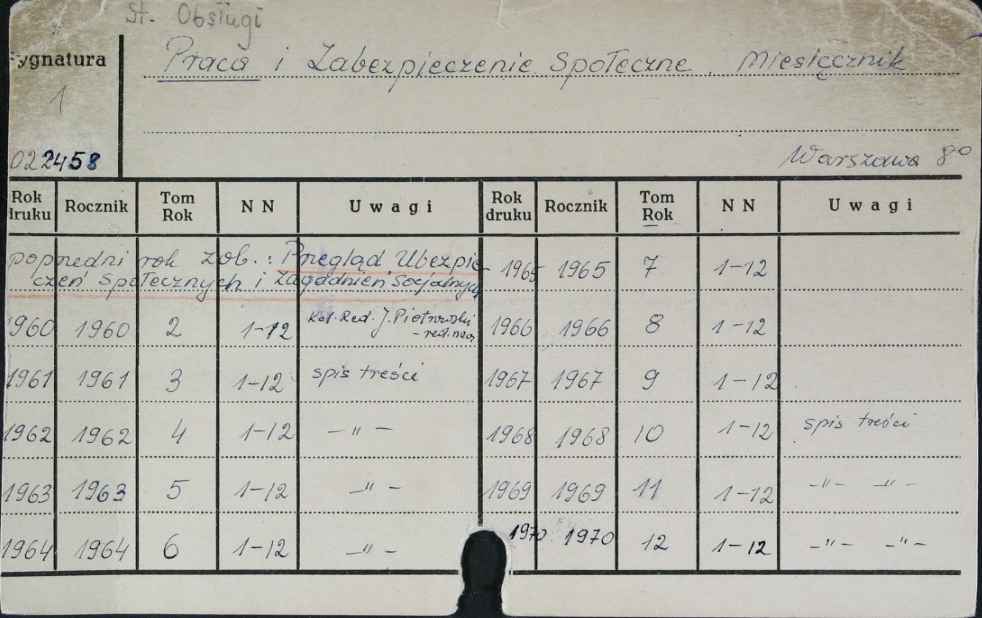 St. Obsługi
Sygnatura
Praca i Zabezpieczenie Społeczne. Miesięcznik
1
022458
Warszawa 8°
Rok druku Rocznik Tom Rok NN Uwagi Rok druku Rocznik Tom Rok NN Uwagi
poprzedni rok zob.: Przegląd Ubezpie- 1965 1965 7 1-12
czeń Społecznych i Zagadnień Socjalnych
1960 1960 2 1-12 Kol. Red. J. Piotrowski 1966 1966 8 1-12
- red. nacz.
1961 1961 3 1-12 spis treści 1967 1967 9 1-12
1962 1962 4 1-12 -"- 1968 1968 10 1-12 spis treści
1963 1963 5 1-12 -"- 1969 1969 11 1-12 -"- -"-
1964 1964 6 1-12 -"- 1970 1970 12 1-12 -"- -"-